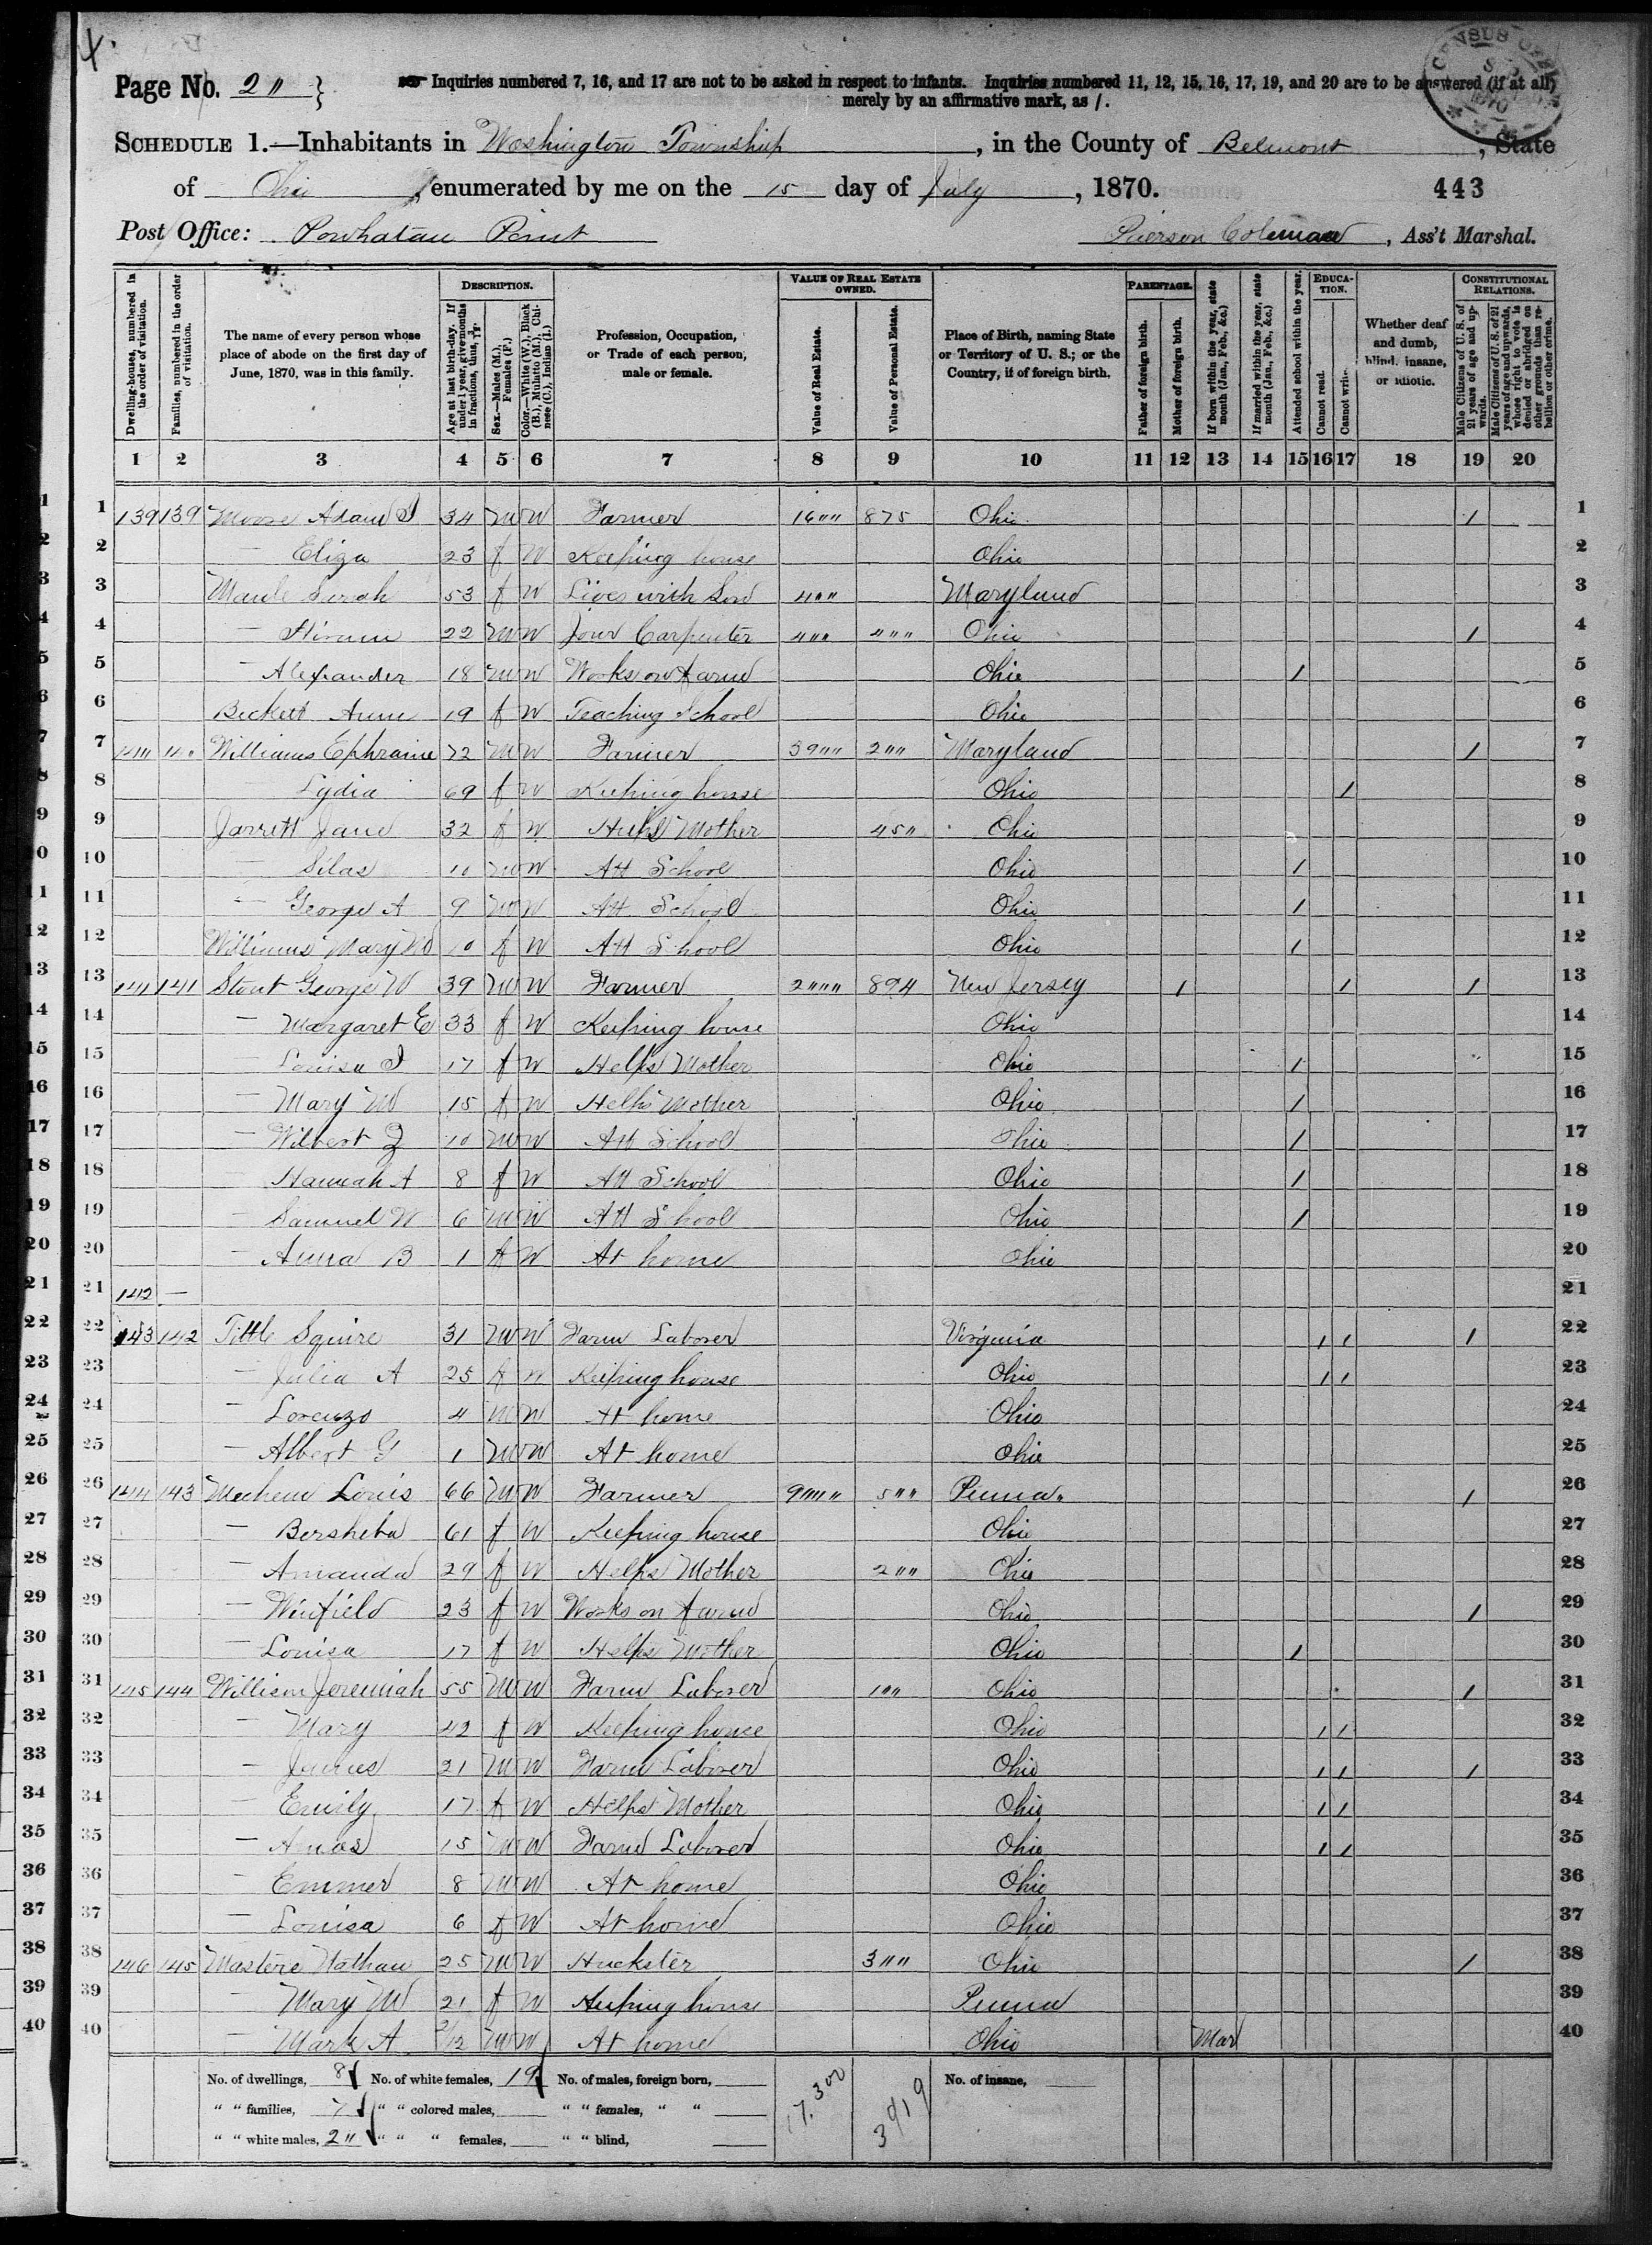 4.
Page No. 2 " }
Inquiries numbered 7, 16, and 17 are not to be asked in respect to infants. Inquiries numbered 11, 12, 15, 16, 17, 19, and 20 are to be answered (if at all)
merely by an affirmative mark, as /.
SCHEDULE 1.—Inhabitants in Washington Township, in the County of Belmont, State
of Ohio, enumerated by me on the 15 day of July, 1870. 443
Post Office: Powhatan Point Pierson Coleman, Ass't Marshal.
Dwelling-houses, numbered in the order of visitation.
Families, numbered in the order of visitation.
The name of every person whose place of abode on the first day of June, 1870, was in this family.
DESCRIPTION.
Age at last birth-day. If under 1 year, give months in fractions, thus,
Sex.—Males (M.), Females (F.)
Color.—White (W.), Black (B.), Mulatto (M.), Chinese (C.), Indian (I.)
Profession, Occupation, or Trade of each person, male or female.
VALUE OF REAL ESTATE OWNED.
Value of Real Estate.
Value of Personal Estate.
Place of Birth, naming State or Territory of U. S.; or the Country, if of foreign birth.
PARENTAGE.
Father of foreign birth.
Mother of foreign birth.
If born within the year, state month (Jan., Feb., &c.)
If married within the year, state month (Jan., Feb., &c.)
Attended school within the year.
EDUCATION.
Cannot read.
Cannot write.
Whether deaf and dumb, blind, insane, or idiotic.
CONSTITUTIONAL RELATIONS.
Male Citizens of U. S. of 21 years of age and upwards.
Male Citizens of U. S. of 21 years of age and upwards, whose right to vote is denied or abridged on other grounds than rebellion or other crime.
1 2 3 4 5 6 7 8 9 10 11 12 13 14 15 16 17 18 19 20
1 139 139 Moore Adam S 34 M W Farmer 16"" 875 Ohio / 1
2 — Eliza 23 f W Keeping house Ohio 2
3 Maule Sarah 53 f W Lives with Son 4"" Maryland 3
4 — Hiram 22 M W Jour Carpenter 4"" 4"" Ohio / 4
5 — Alexander 18 M W Works on farm Ohio / 5
6 Beckett Anne 19 f W Teaching School Ohio 6
7 14" 14" Williams Ephraime 72 M W Farmer 39"" 2"" Maryland / 7
8 Lydia 69 f W Keeping house Ohio / 8
9 Jarrett Jane 32 f W Helps Mother 45" Ohio 9
10 — Silas 10 M W Att School Ohio / 10
11 — George A 9 M W Att School Ohio / 11
12 Williams Mary M 10 f W Att School Ohio / 12
13 141 141 Stout George W 39 M W Farmer 2""" 894 New Jersey / / / 13
14 — Margaret E 33 f W Keeping house Ohio 14
15 — Louisa J 17 f W Helps Mother Ohio / 15
16 — Mary M 15 f W Helps Mother Ohio / 16
17 — Wilbert Z 10 M W Att School Ohio / 17
18 — Hannah A 8 f W Att School Ohio / 18
19 — Samuel W 6 M W Att School Ohio / 19
20 — Anna B 1 f W At home Ohio 20
21 142 — 21
22 143 142 Tittle Squire 31 M W Farm Laborer Virginia / / / 22
23 — Julia A 25 f W Keeping house Ohio / / 23
24 — Lorenzo 4 M W At home Ohio 24
25 — Albert G 1 M W At home Ohio 25
26 144 143 Mechem Louis 66 M W Farmer 9"""" 5"" Penna. / 26
27 — Bersheba 61 f W Keeping house Ohio 27
28 — Amanda 29 f W Helps Mother 2"" Ohio 28
29 — Winfield 23 f W Works on farm Ohio / 29
30 — Louisa 17 f W Helps Mother Ohio / 30
31 145 144 Willison Jeremiah 55 M W Farm Laborer 1"" Ohio / 31
32 — Mary 42 f W Keeping house Ohio / / 32
33 — James 21 M W Farm Laborer Ohio / / / 33
34 — Emily 17 f W Helps Mother Ohio / / 34
35 — Amos 15 M W Farm Laborer Ohio / / 35
36 — Emmer 8 M W At home Ohio 36
37 — Louisa 6 f W At home Ohio 37
38 146 145 Masters Nathan 25 M W Huckster 3"" Ohio / 38
39 — Mary M 21 f W Keeping house Penna 39
40 — Mark A 3/12 M W At home Ohio Mar 40
No. of dwellings, 8 No. of white females, 19 No. of males, foreign born, 17.300 3919 No. of insane,
" " families, 7 " " colored males, " " females, " "
" " white males, 2" " " " females, " " blind,